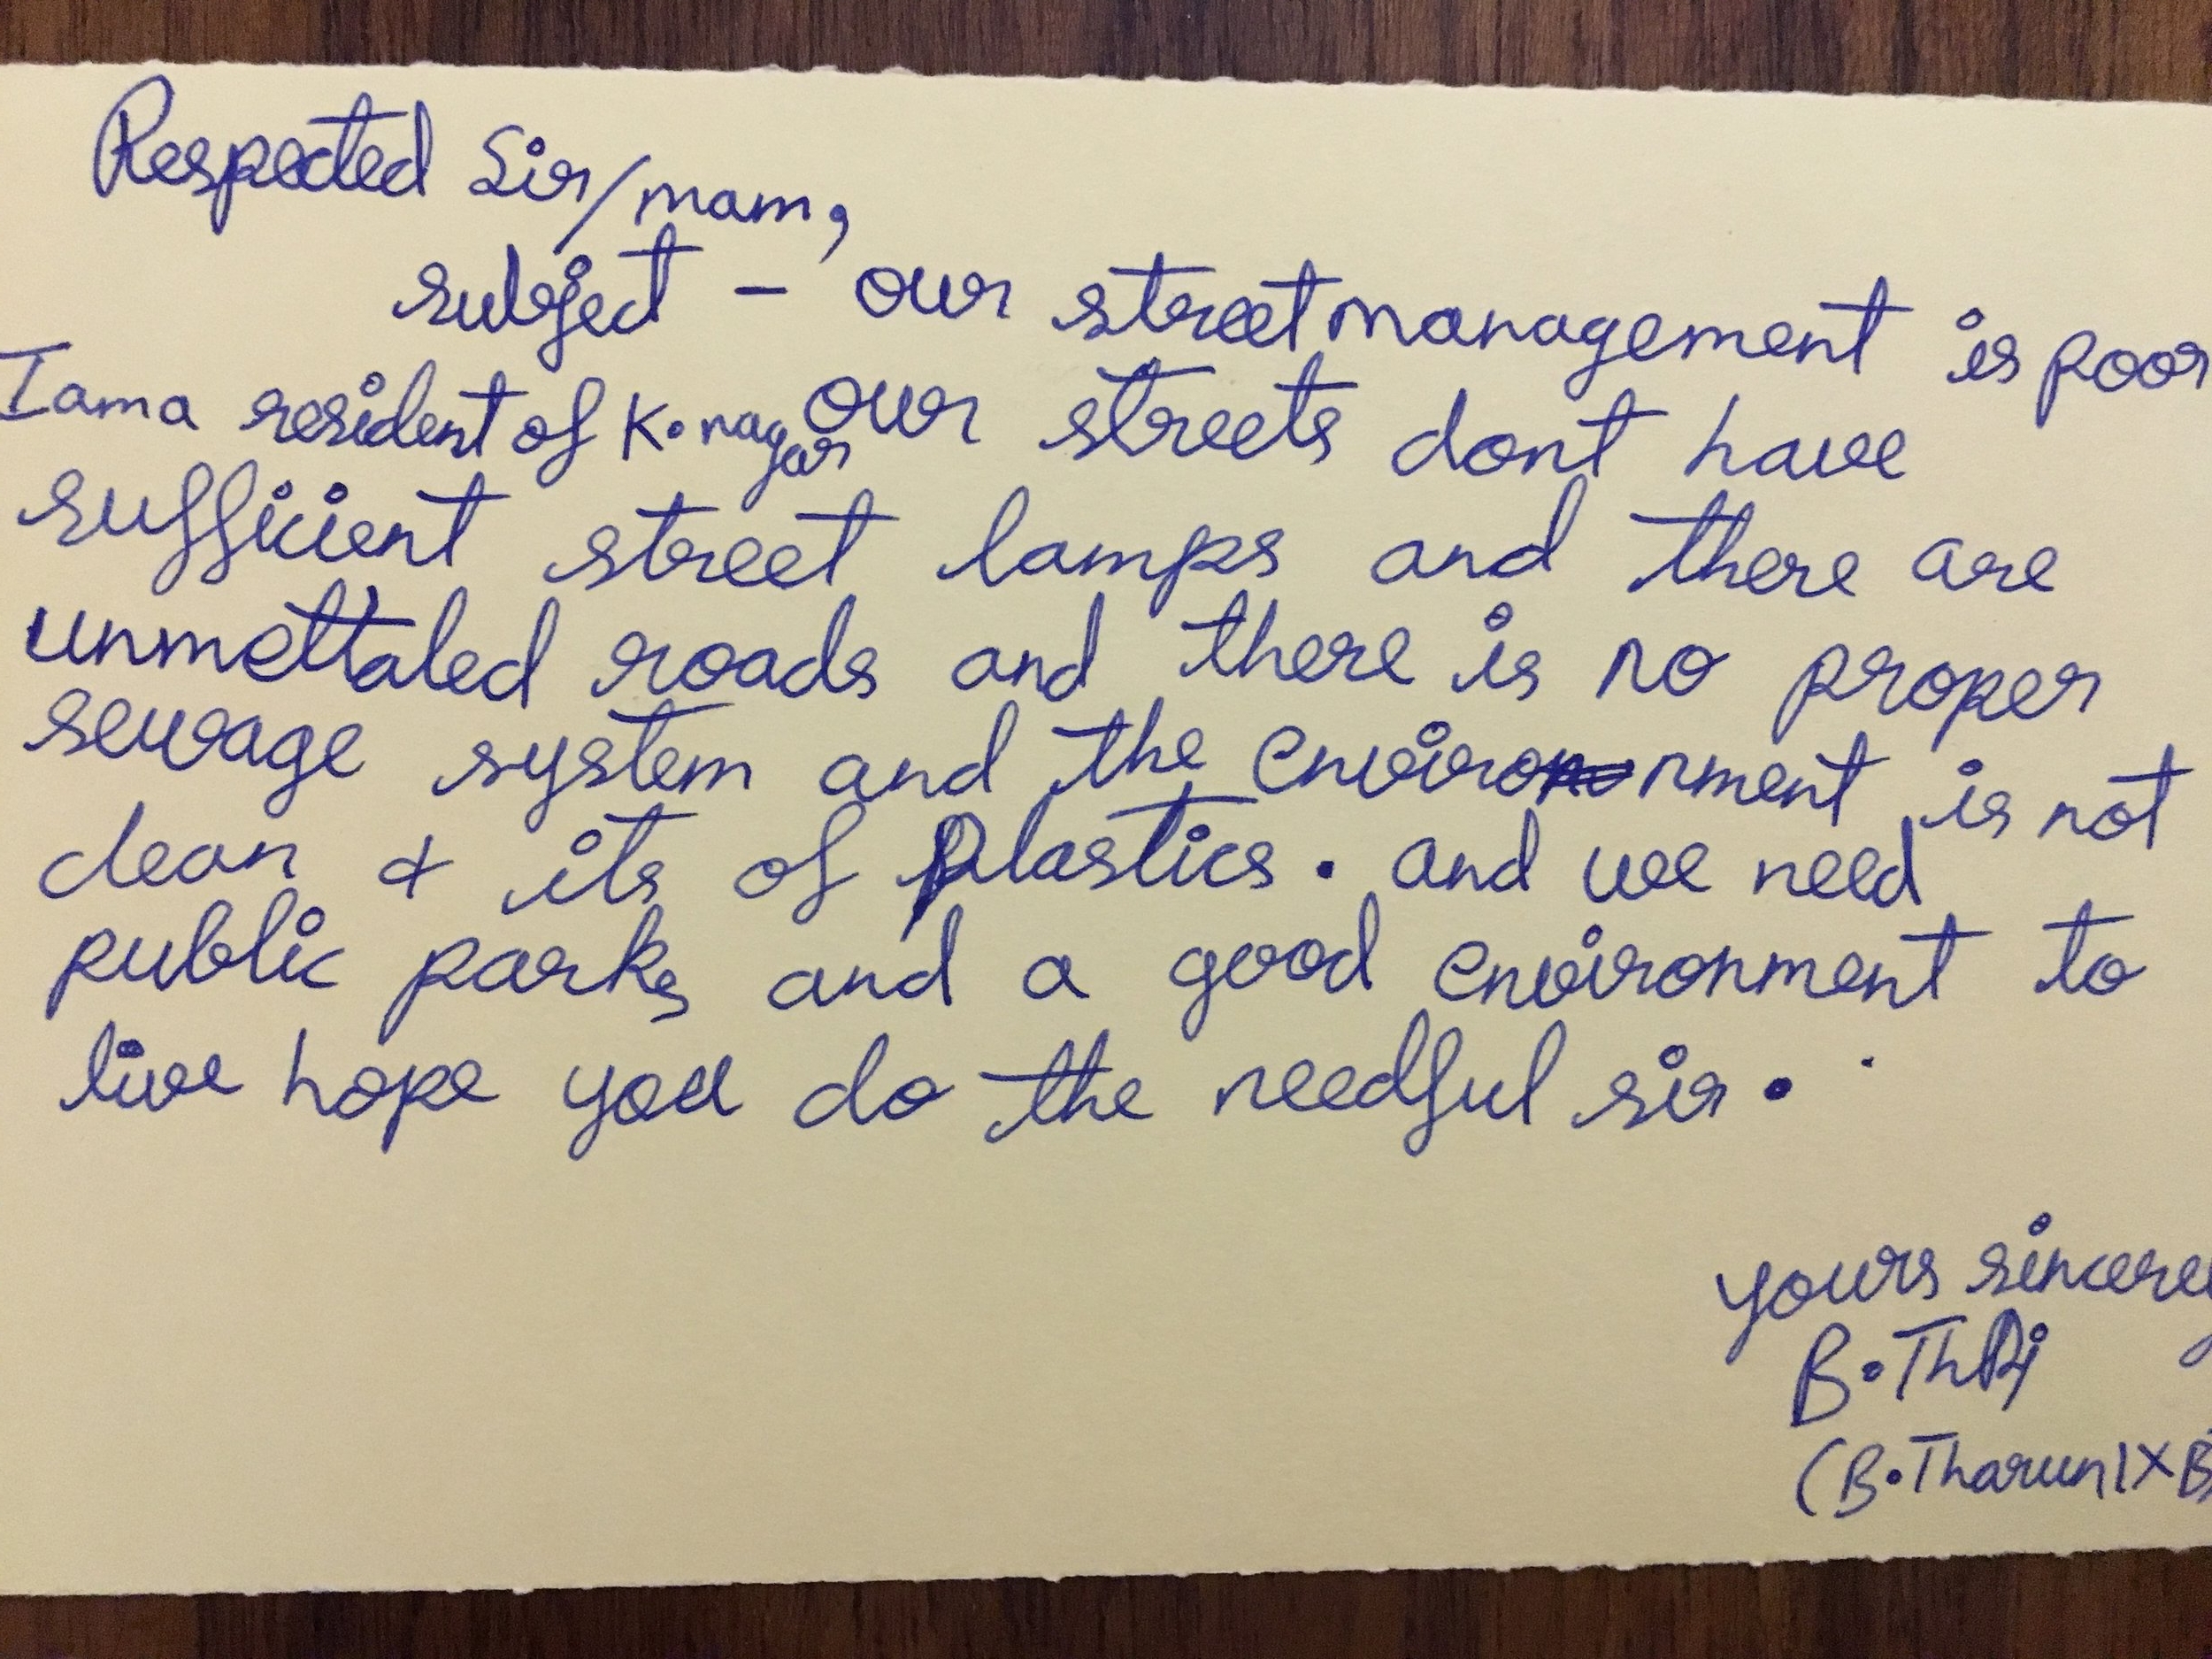 Respected Sir/mam,
subject - our street management is poor
I am a resident of K.nagar our streets dont have
sufficient street lamps and there are
unmettaled roads and there is no proper
sewage system and the environment is not
clean & its of plastics. and we need
public parks and a good environment to
live hope you do the needful sir.
yours sincerey
B.Th
(B.Tharun IX B)